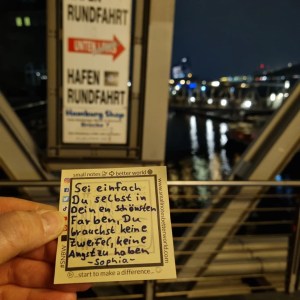 HAFEN
RUNDFAHRT
UNTEN LINKS
HAFEN
RUNDFAHRT
Hamburg Shop
Brücke
small notes better world
Sei einfach
Du selbst in
Deinen schönsten
Farben, Du
brauchst keine
Zweifel, keine
Angst zu haben
-Sophia-
...start to make a difference...